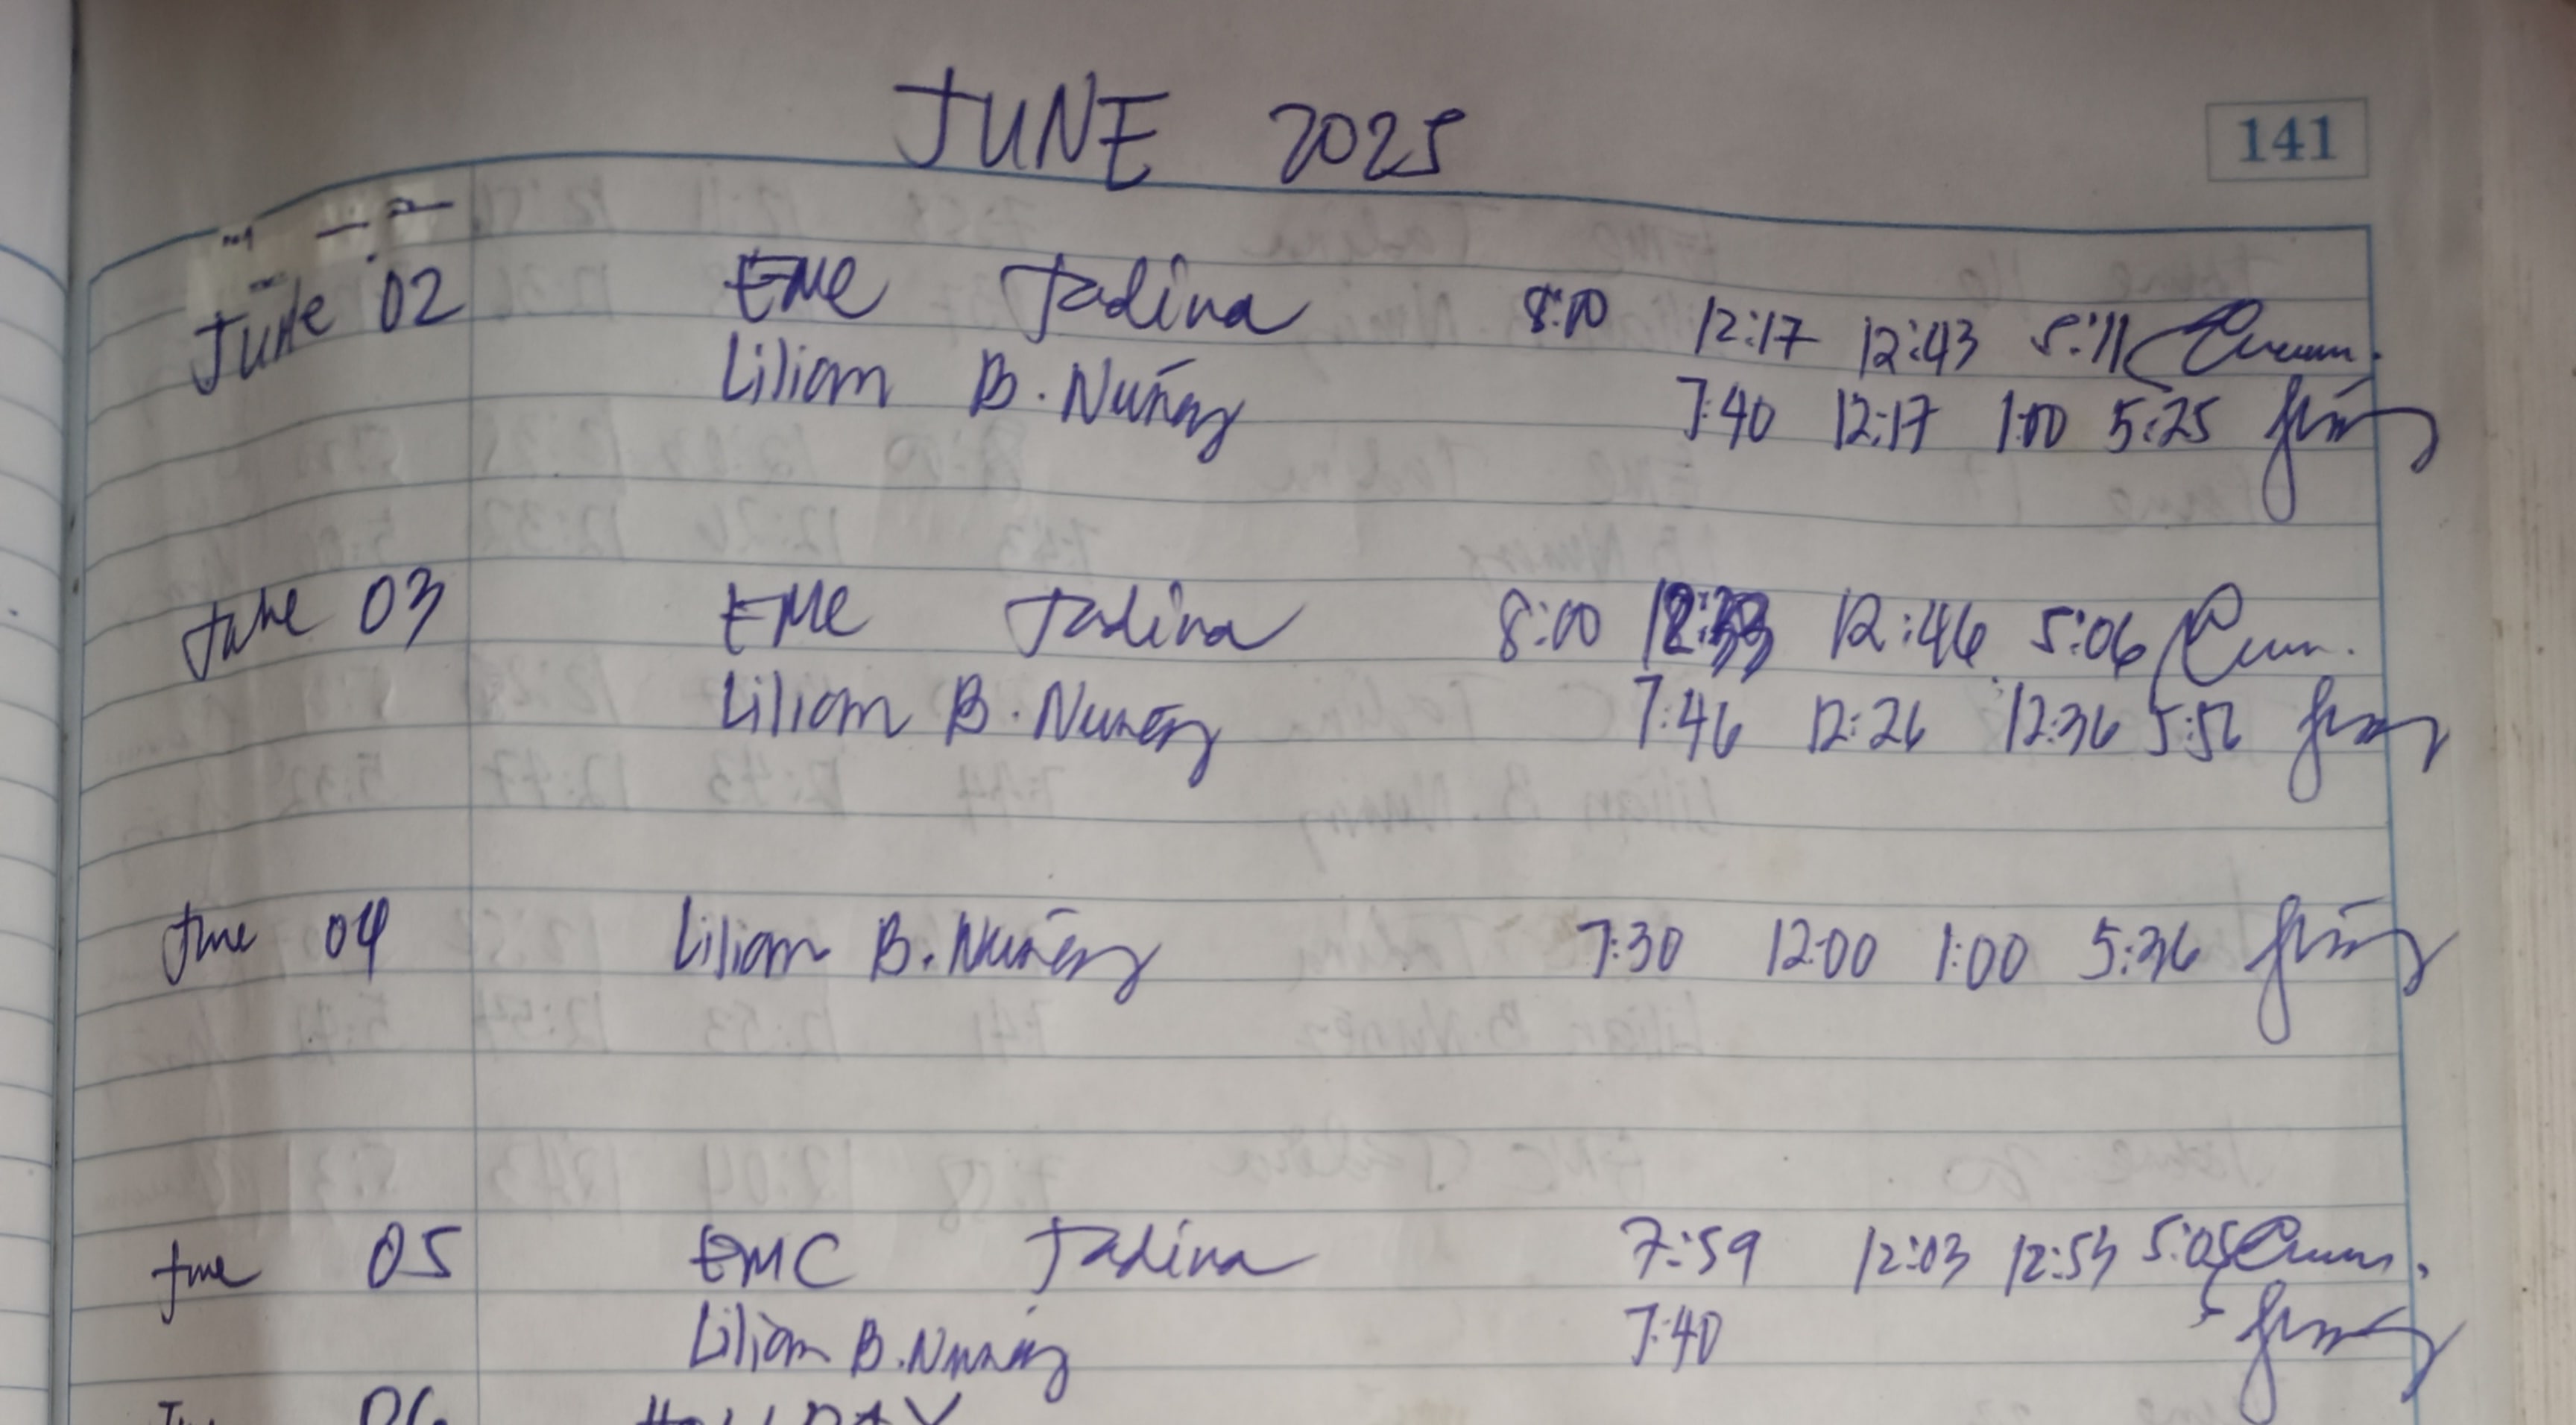 JUNE 2025
141
June 02 EMC Tadina 8:00 12:17 12:43 5:11
Lilian B. Nuñez 7:40 12:17 1:00 5:25
June 03 EMC Tadina 8:00 12:33 12:46 5:06
Lilian B. Nuñez 7:46 12:26 12:36 5:56
June 04 Lilian B. Nuñez 7:30 12:00 1:00 5:36
June 05 EMC Tadina 7:59 12:03 12:53 5:05
Lilian B. Nuñez 7:40
06 HOLIDAY